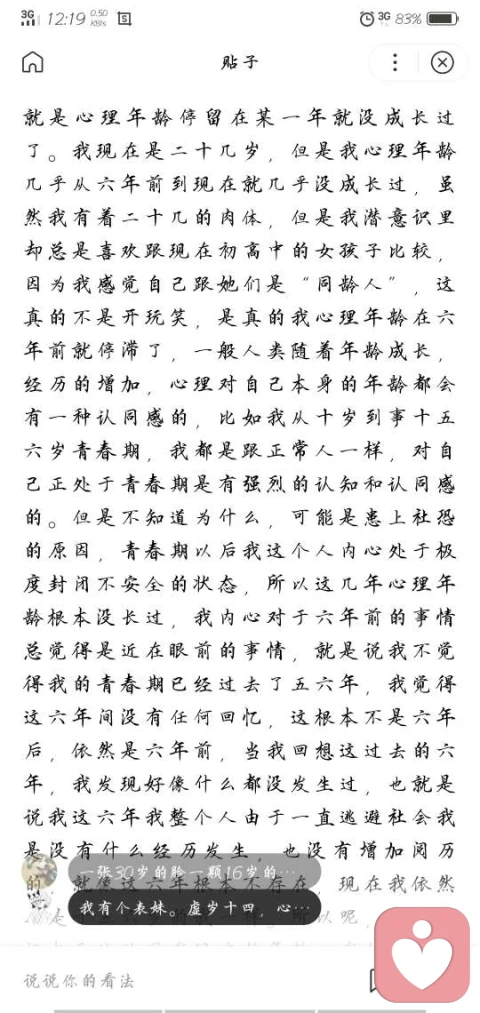 3G 12:19 0.50 KB/s 3G 83%
贴子
就是心理年龄停留在某一年就没成长过
了。我现在是二十几岁，但是我心理年龄
几乎从六年前到现在就几乎没成长过，虽
然我有着二十几的肉体，但是我潜意识里
却总是喜欢跟现在初高中的女孩子比较，
因为我感觉自己跟她们是“同龄人”，这
真的不是开玩笑，是真的我心理年龄在六
年前就停滞了，一般人类随着年龄成长，
经历的增加，心理对自己本身的年龄都会
有一种认同感的，比如我从十岁到事十五
六岁青春期，我都是跟正常人一样，对自
己正处于青春期是有强烈的认知和认同感
的。但是不知道为什么，可能是患上社恐
的原因，青春期以后我这个人内心处于极
度封闭不安全的状态，所以这几年心理年
龄根本没长过，我内心对于六年前的事情
总觉得是近在眼前的事情，就是说我不觉
得我的青春期已经过去了五六年，我觉得
这六年间没有任何回忆，这根本不是六年
后，依然是六年前，当我回想这过去的六
年，我发现好像什么都没发生过，也就是
说我这六年我整个人由于一直逃避社会我
是没有什么经历发生，也没有增加阅历
一张30岁的脸一颗16岁的…
的，就像这六年根本不存在，现在我依然
我有个表妹。虚岁十四，心…
说说你的看法